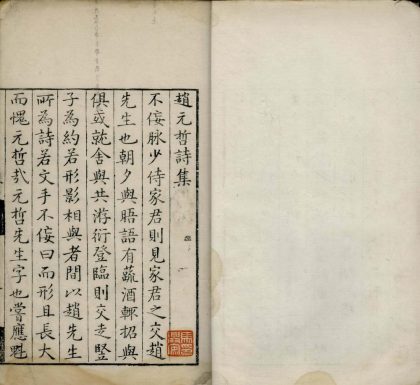 趙元哲詩集
不佞脉少侍家君則見家君之交趙
先生也朝夕與晤語有蔬酒輒招與
俱或就舍與共游衍登臨則交走豎
子為約若形影相與者間以趙先生
所為詩若文手不佞曰而形且長大
而愧元哲哉元哲先生字也嘗應魁